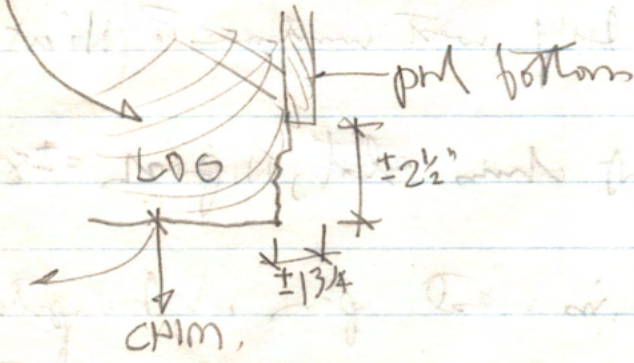 bottom
LOG
±2½"
±1¾
CHIM.